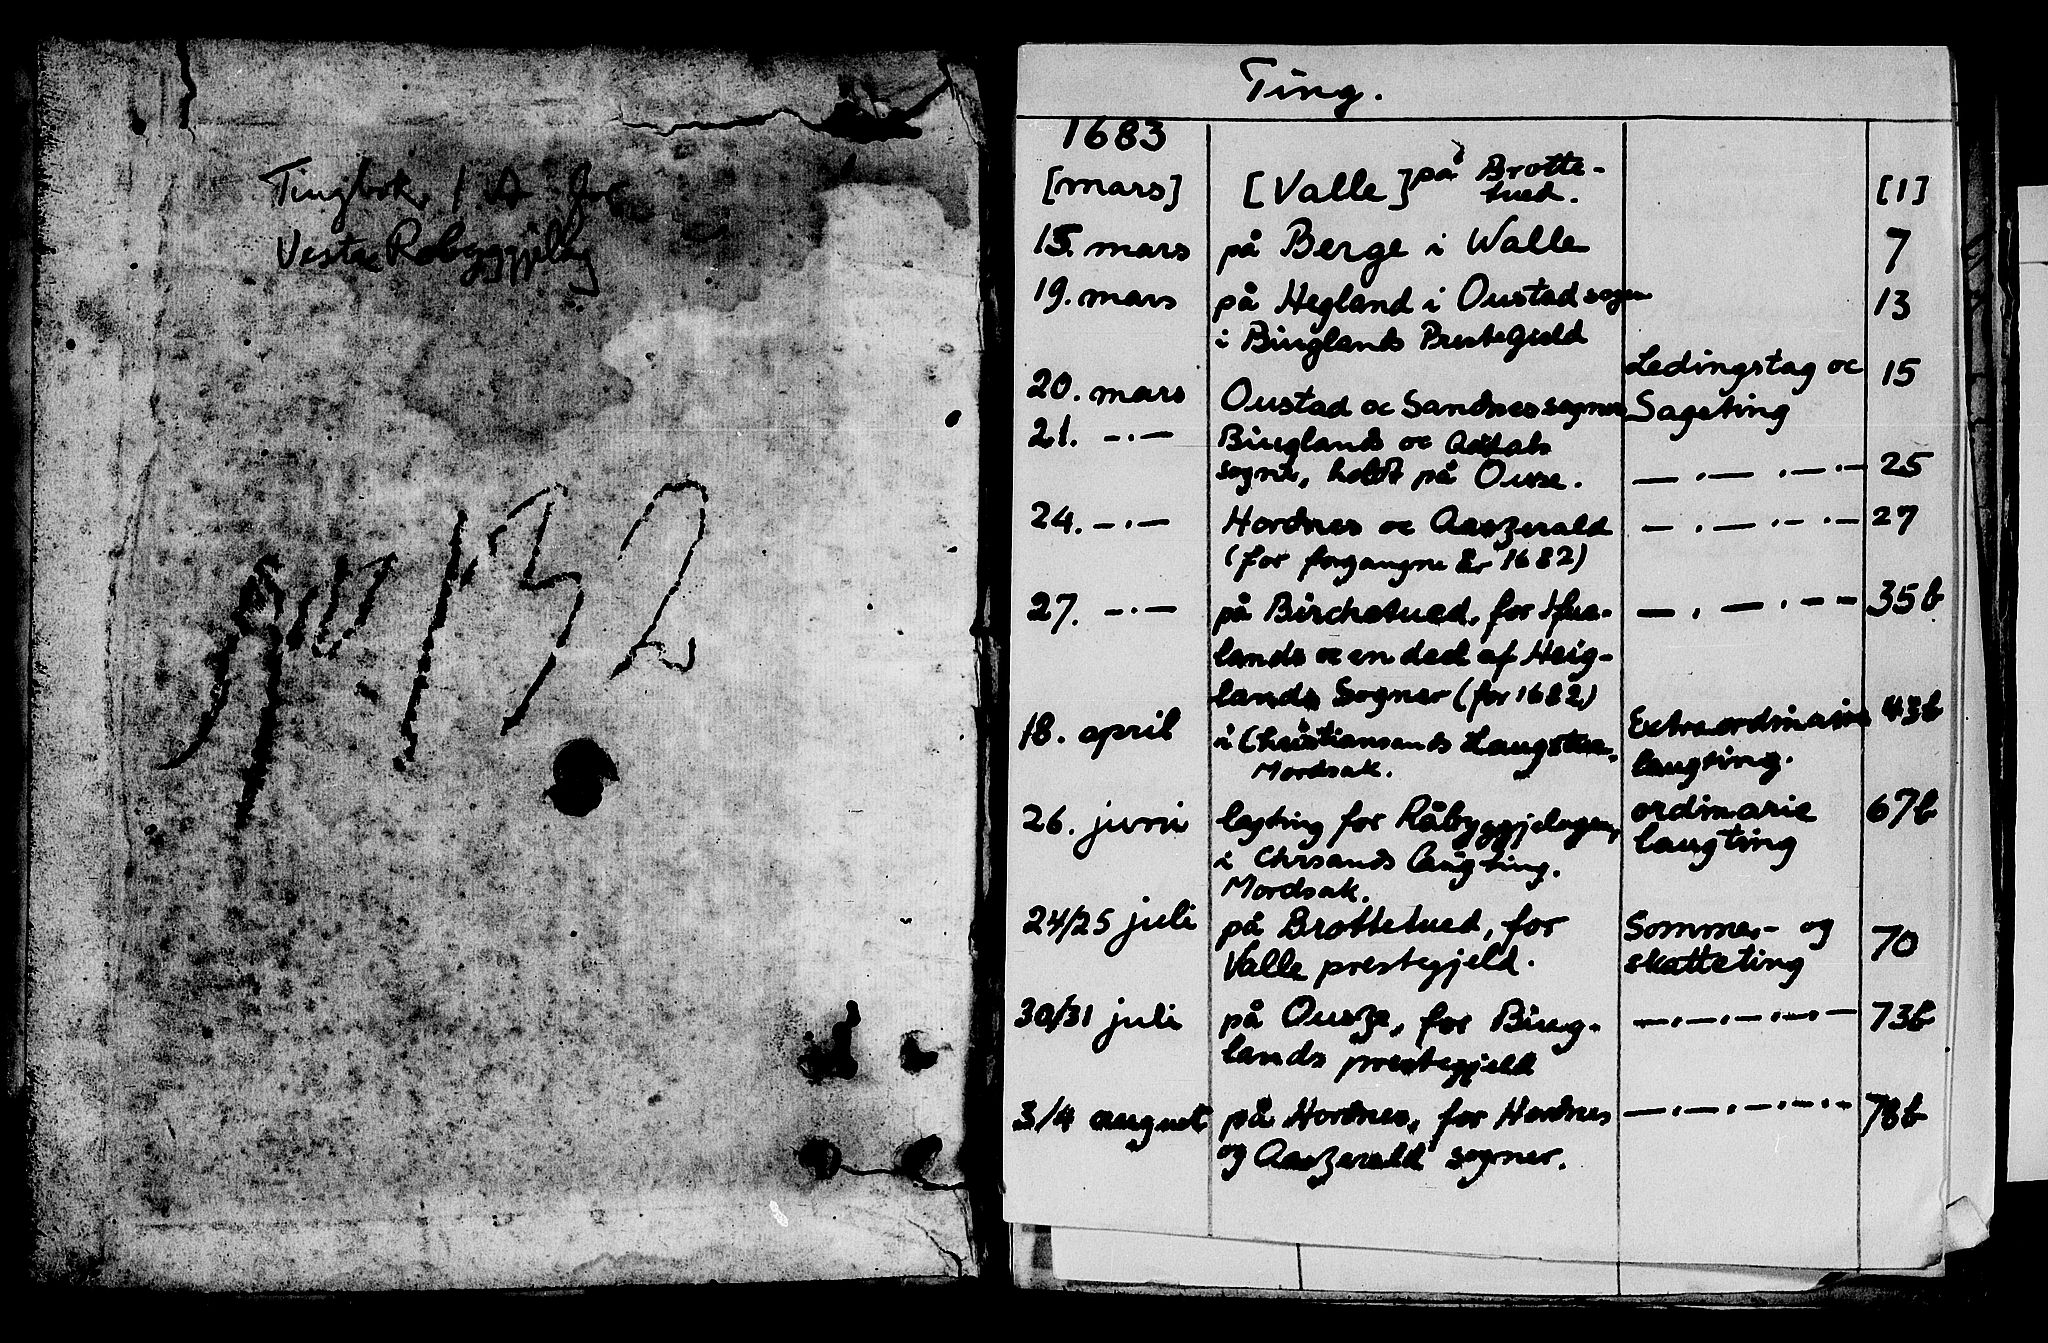 Tingbok 1 A for
Vestre Råbyggjelag
132
Ting.
1683
[mars] [Valle] på Brotte-
tued. [1]
15. mars på Berge i Walle 7
19. mars på Hegland i Oustad sogn 13
i Biuglands Prestegield
20. mars Oustad oc Sandnes sogner Ledingstag oc Sageting 15
21. -.- Biuglands oc
sogne, holdt på Ouse. -.-.- 25
24. -.- Hordnes oc Aaszerald -.-.- 27
(for forgangne år 1682)
27. -.- på Birchetued, for Hua- -.-.- 35b
lands oc en deel af Heig-
lands Sogner (for 1682)
18. april i Christiansands Laugstue. Extraordinaire laugting. 43b
Mordsak.
26. juni lagting for Råbyggjelagen, ordinarie laugting 67b
i Chrsands laugting.
Mordsak.
24/25 juli på Brottetued, for Sommer- og 70
Valle prestegjeld. skatteting
30/31 juli på Ousze, for Biug- -.-.-.- 73b
lands prestegjeld
3/4 august på Hordnes, for Hordnes -.-.-.- 78b
og Aaszerald sogner.